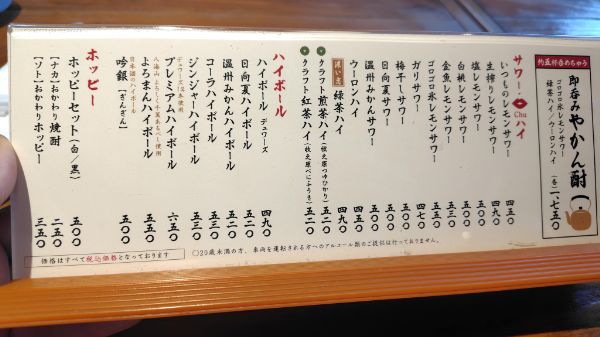 約五杯呑めちゃう
即呑みやかん酎
ゴロゴロ氷レモンサワー
緑茶ハイ/ウーロンハイ (各) 一、七五〇
サワー・Chuハイ
いつものレモンサワー 四五〇
生搾りレモンサワー 四九〇
塩レモンサワー 五〇〇
白桃レモンサワー 五五〇
金魚レモンサワー 五五〇
ゴロゴロ氷レモンサワー 五五〇
ガリサワー 四七〇
梅干しサワー 五〇〇
日向夏サワー 五〇〇
温州みかんサワー 五〇〇
ウーロンハイ 四九〇
濃い恋 緑茶ハイ 四九〇
クラフト煎茶ハイ(牧之原つゆひかり) 五二〇
クラフト紅茶ハイ(牧之原べにふうき) 五二〇
ハイボール
ハイボール デュワーズ 四九〇
日向夏ハイボール 五二〇
温州みかんハイボール 五二〇
ジンジャーハイボール 五三〇
コーラハイボール 五三〇
プレミアムハイボール 六五〇
八海山 よろしく千萬あるべし使用
よろまんハイボール 五五〇
日本酒のハイボール
吟銀【ぎんぎん】 五〇〇
ホッピー
ホッピーセット(白/黒) 五〇〇
【ナカ】おかわり焼酎 二五〇
【ソト】おかわりホッピー 三五〇
価格はすべて税込価格となっております
〇20歳未満の方、車両を運転される方へのアルコール類のご提供は行っておりません。